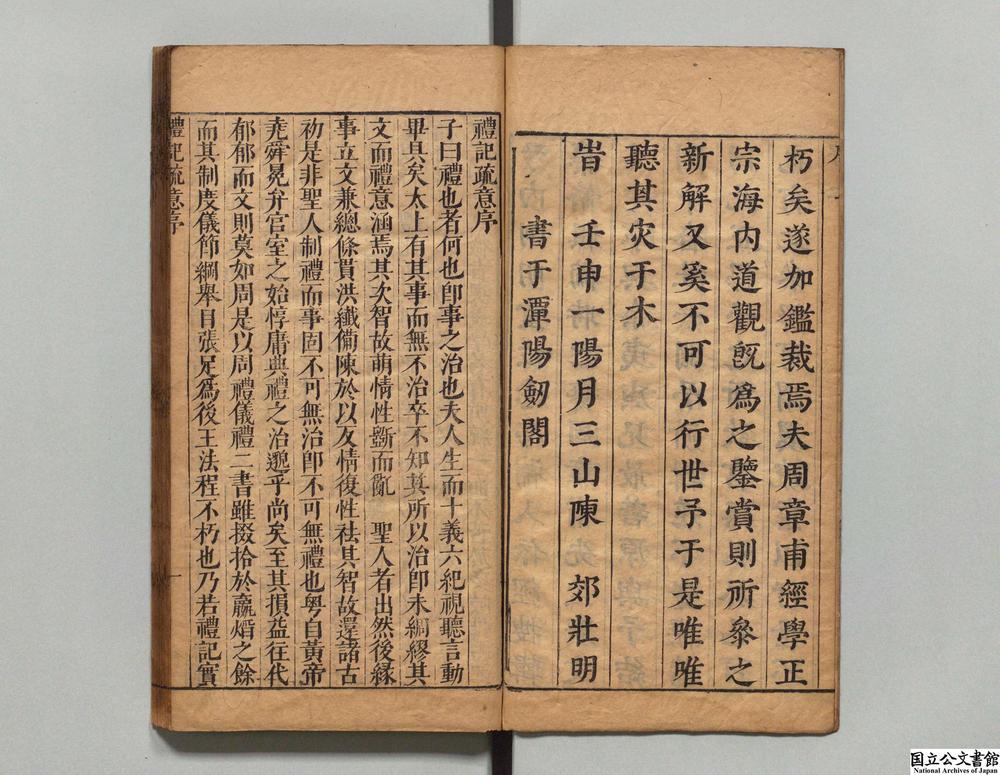 朽矣遂加鑑裁焉夫周章甫經學正
宗海内道觀旣為之鑒賞則所叅之
新解又奚不可以行世予于是唯唯
聽其灾于木
旹壬申一陽月三山陳 郊壯明
書于潭陽劒閣
禮記疏意序
子曰禮也者何也卽事之治也夫人生而十義六紀視聽言動
畢具矣太上有其事而無不治卒不知其所以治卽未綢繆其
文而禮意涵焉其次智故萌情性斵而亂 聖人者出然後緣
事立文兼總條貫洪纖備陳於以反情復性袪其智故還諸古
初是非聖人制禮而事固不可無治卽不可無禮也粤自黃帝
堯舜冕弁宮室之始惇庸典禮之治邈乎尚矣至其損益往代
郁郁而文則莫如周是以周禮儀禮二書雖掇拾於嬴煨之餘
而其制度儀節綱舉目張足為後王法程不朽也乃若禮記實
禮記疏意序
一
国立公文書館
National Archives of Japan